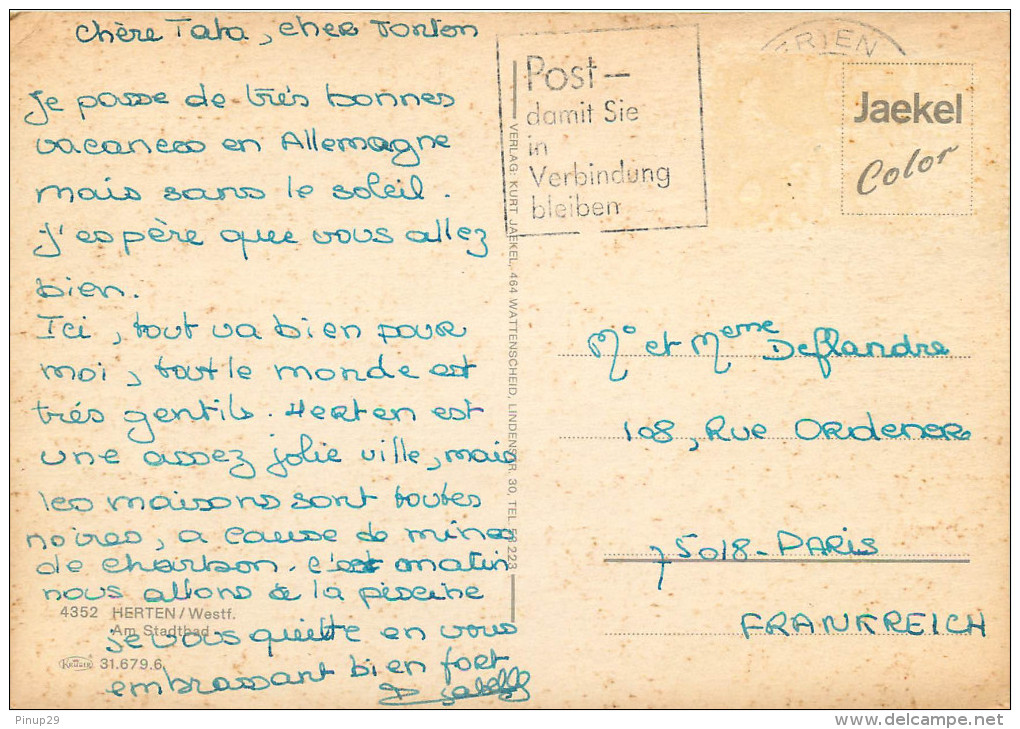 Chère Tata, cher Tonton
Je passe de très bonnes
vacances en Allemagne
mais sans le soleil.
J'espère que vous allez
bien.
Ici, tout va bien pour
moi, tout le monde est
trés gentils. Herten est
une assez jolie ville, mais
les maisons sont toutes
noires, a cause de mines
de charbon. c'est matin
nous allons à la piscine
4352 HERTEN/Westf.
Am Stadtbad
je vous quitte en vous
KRÜGER 31.679.6
embrassant bien fort
Isabelle
VERLAG: KURT JAEKEL, 464 WATTENSCHEID, LINDENSTR. 30, TEL. 223
Post-
damit Sie
in
Verbindung
bleiben
Jaekel
Color
Mr et Meme Deflandre
108, Rue ORDENER
75018-PARIS
FRANKREICH
Pinup29
www.delcampe.net